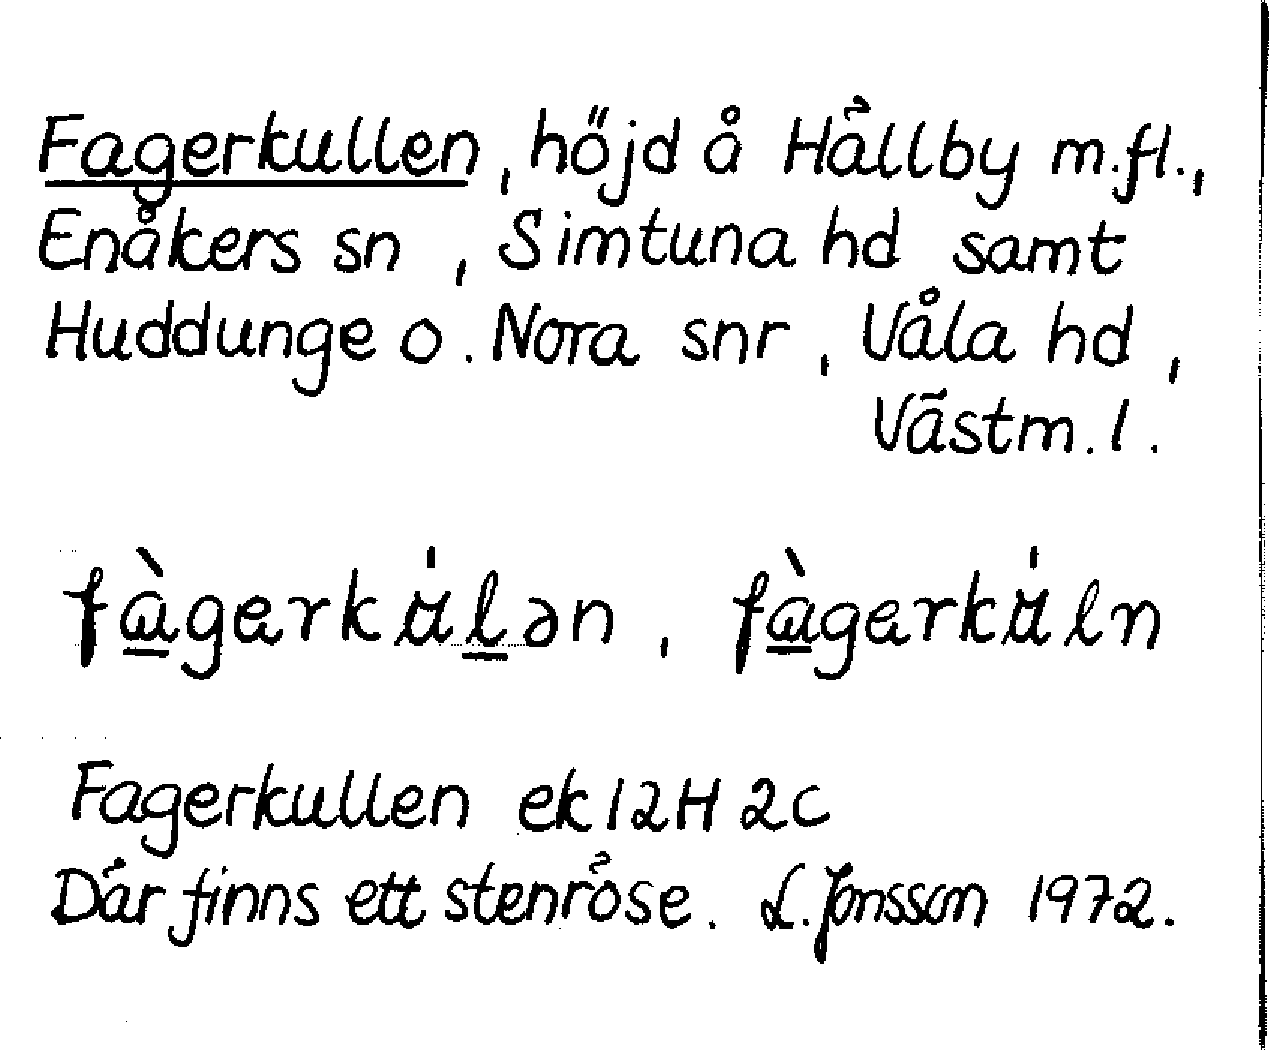 Fagerkullen, höjd å Hållby m.fl.,
Enåkers sn, Simtuna hd samt
Huddunge o. Nora snr, Våla hd,
Västm. l.
fàgerkúlən, fàgerkúln
Fagerkullen ek 12H 2c
Där finns ett stenröse. L. Jonsson 1972.